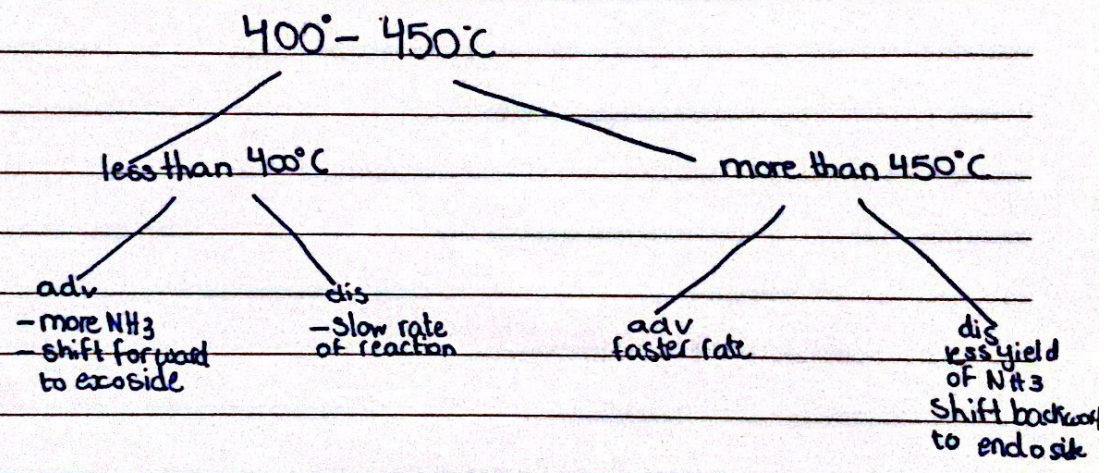 400° - 450°C
less than 400°C
more than 450°C
adv
- more NH3
- shift forward
to exoside
dis
- slow rate
of reaction
adv
faster rate
dis
less yield
of NH3
shift backward
to endoside